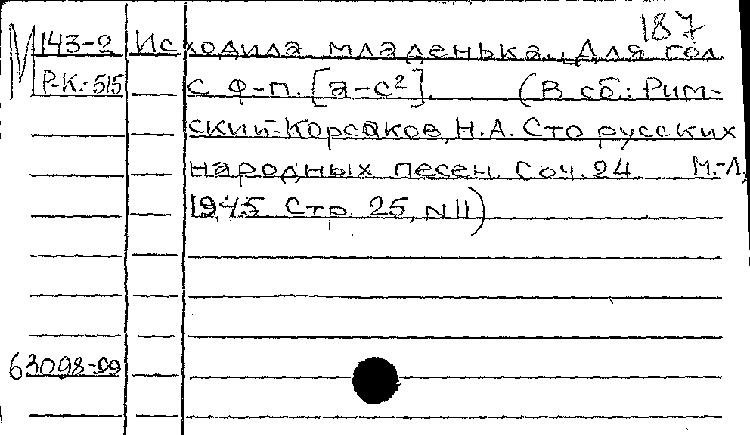 187
М 143-2 Исходила младенька... Для гол.
Р-К.-515 с ф-п. [а-с²]. (В сб.: Рим-
ский-Корсаков, Н.А. Сто русских
народных песен. Соч. 24 М.-Л.,
1945 Стр. 25, N 11)
63098-09